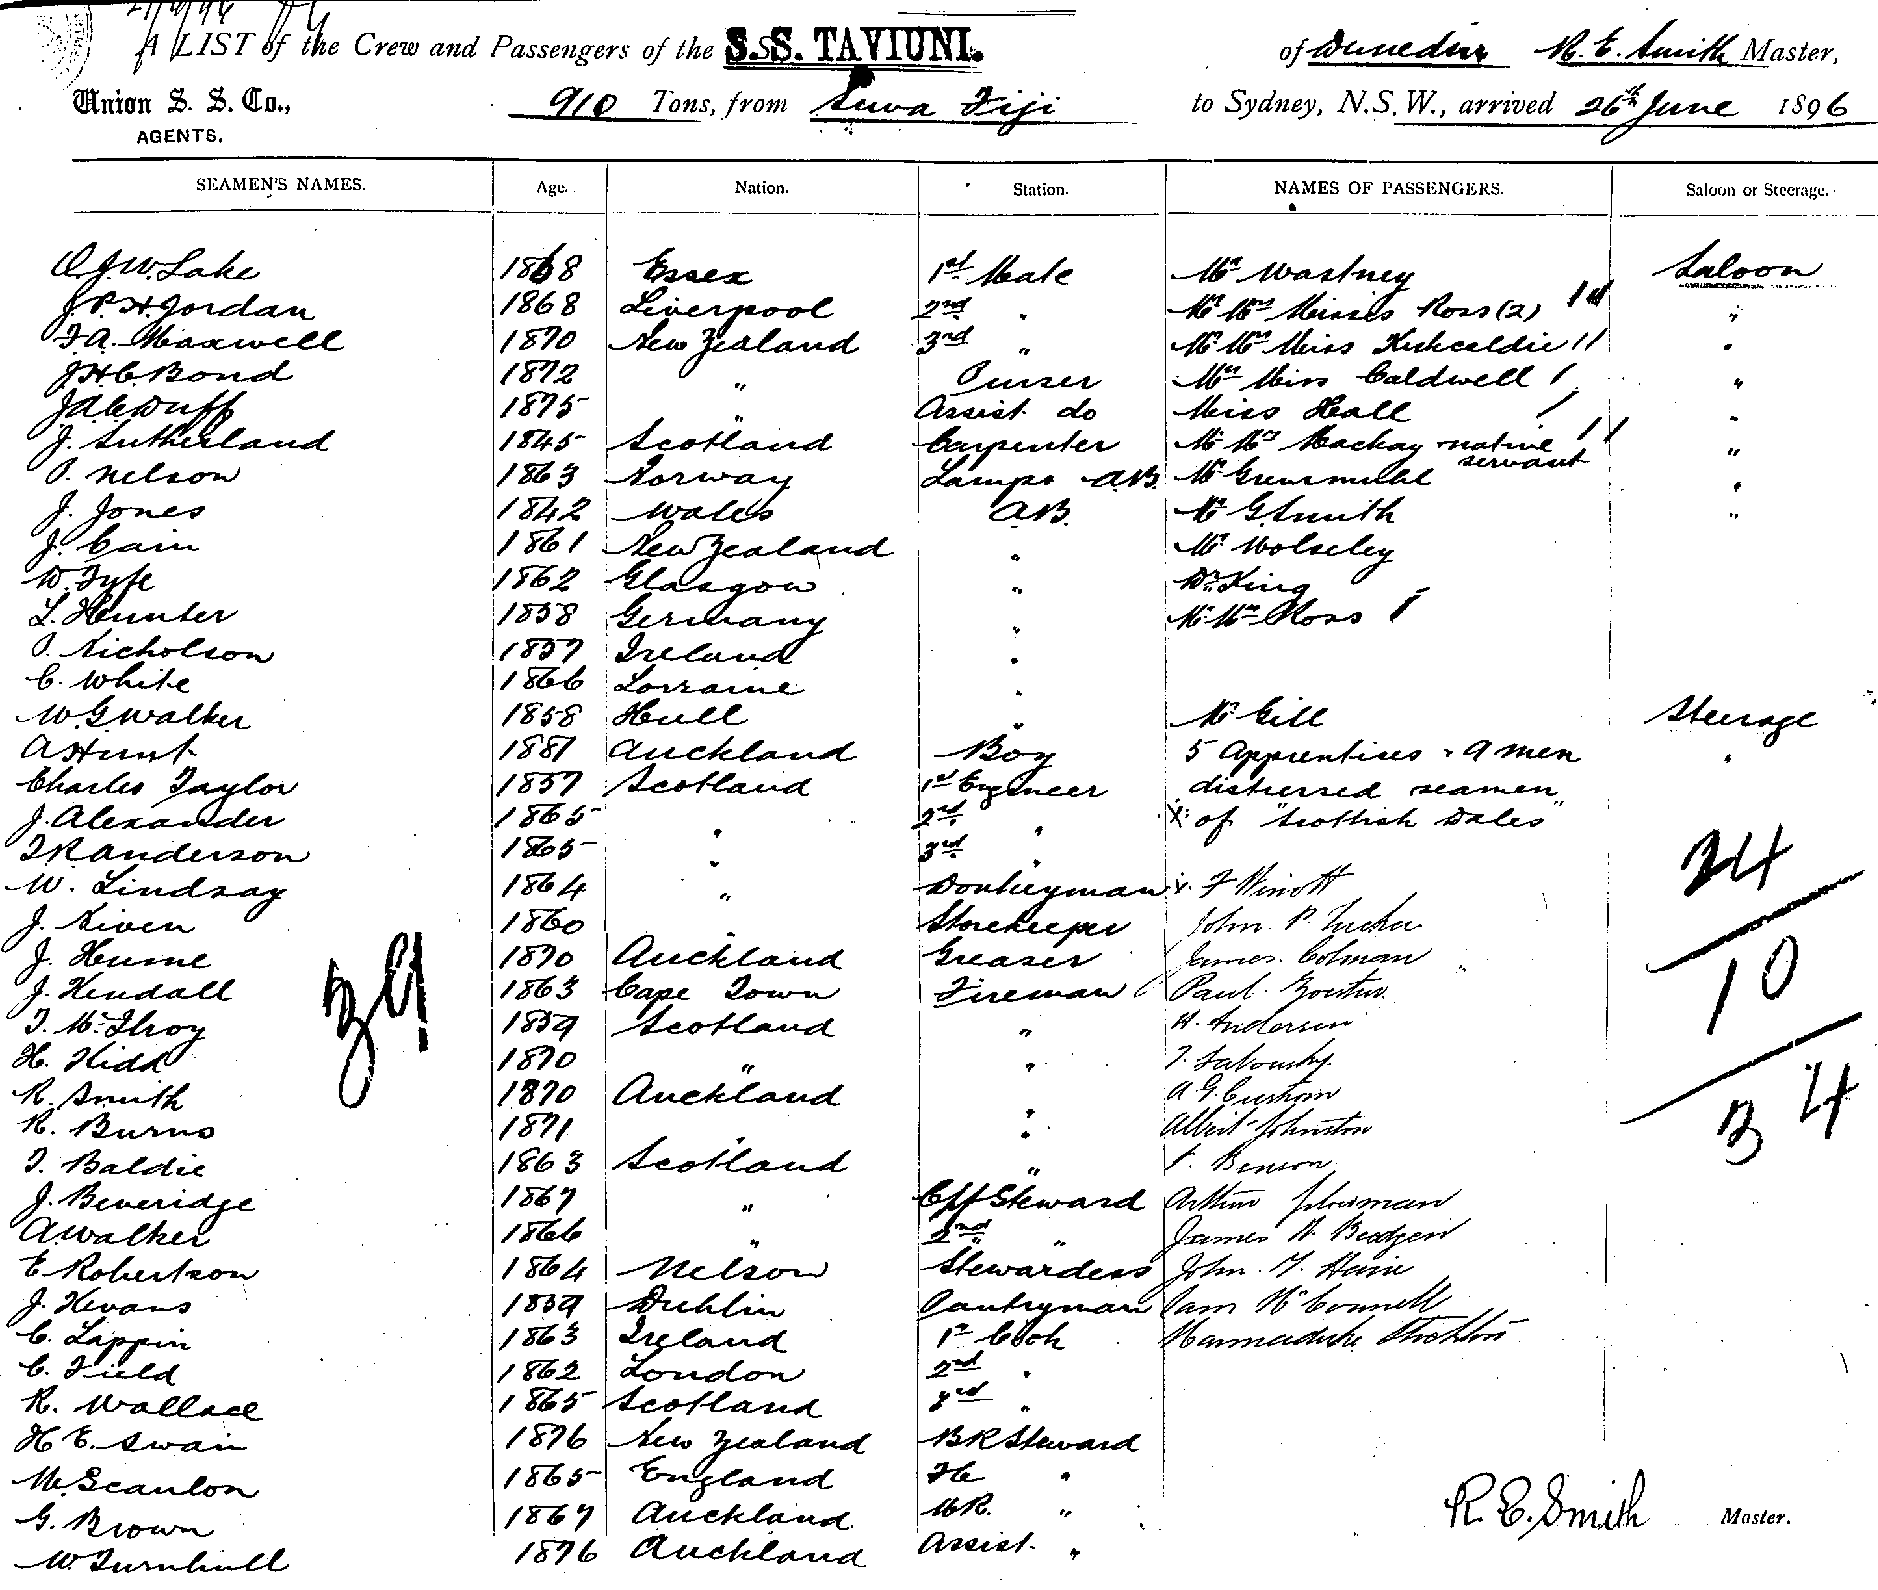 21/6/96
A LIST of the Crew and Passengers of the S.S. TAVIUNI. of Dunedin R. E. Smith Master,
Union S. S. Co., AGENTS. 910 Tons, from Suva Fiji to Sydney, N.S.W., arrived 26th June 1896
SEAMEN'S NAMES. Age. Nation. Station. NAMES OF PASSENGERS. Saloon or Steerage.
O.J.W. Lake 1868 Essex 1st Mate Mr Wastney Saloon
J.P.H. Jordan 1868 Liverpool 2nd " Mr Mrs Misses Ross (2) "
F.A. Maxwell 1870 New Zealand 3rd " Mr Mrs Miss Kirkcaldie "
J.H.C. Bond 1872 " Purser Mrs Miss Caldwell "
Duff 1875 " Assist do Miss Hall "
J. Sutherland 1845 Scotland Carpenter Mr Mrs Mackay native servant "
P. Nelson 1863 Norway Lamps AB. Mr "
J. Jones 1842 Wales AB. Mr G. Smith "
J. Cain 1861 New Zealand " Mr Wolseley
W. Fyfe 1862 Glasgow " Dr King
L. Hunter 1858 Germany " Mr Mrs Ross
P. Nicholson 1857 Ireland "
C. White 1866 Lorraine "
W.G. Walker 1858 Hull " Mr Gill Steerage
A Hunt 1881 Auckland Boy 5 Apprentices 9 men "
Charles Taylor 1857 Scotland 1st Engineer distressed seamen
J. Alexander 1865 " 2nd " of "Scottish Dales"
T R Anderson 1865 " 3rd "
W. Lindsay 1864 " Donkeyman F Winott 24
J. Niven 1860 " Storekeeper John P. Tucker
J. Hume 1870 Auckland Greaser James Colman 10
J. Kendall 1863 Cape Town Fireman Paul
T. McIlroy 1859 Scotland " H. Anderson
H. Kidd 1870 " "
R. Smith 1870 Auckland " A G. 34
R. Burns 1871 " " Albert Johnston
T. Baldie 1863 Scotland " F. Benson
J. Beveridge 1867 " Chf Steward Arthur
A. Walker 1866 " 2nd " James H.
E Robertson 1864 Nelson Stewardess John F.
J. Kevans 1859 Dublin Pantryman Sam McConnell
C. Lappin 1863 Ireland 1st Cook Marmaduke Stockton
C. Field 1862 London 2nd "
R. Wallace 1865 Scotland 3rd "
H E. Swain 1876 New Zealand BR Steward
M. Scanlon 1865 England FC "
G. Brown 1867 Auckland MR. "
W. Turnbull 1876 Auckland Assist. "
39
R. E. Smith Master.